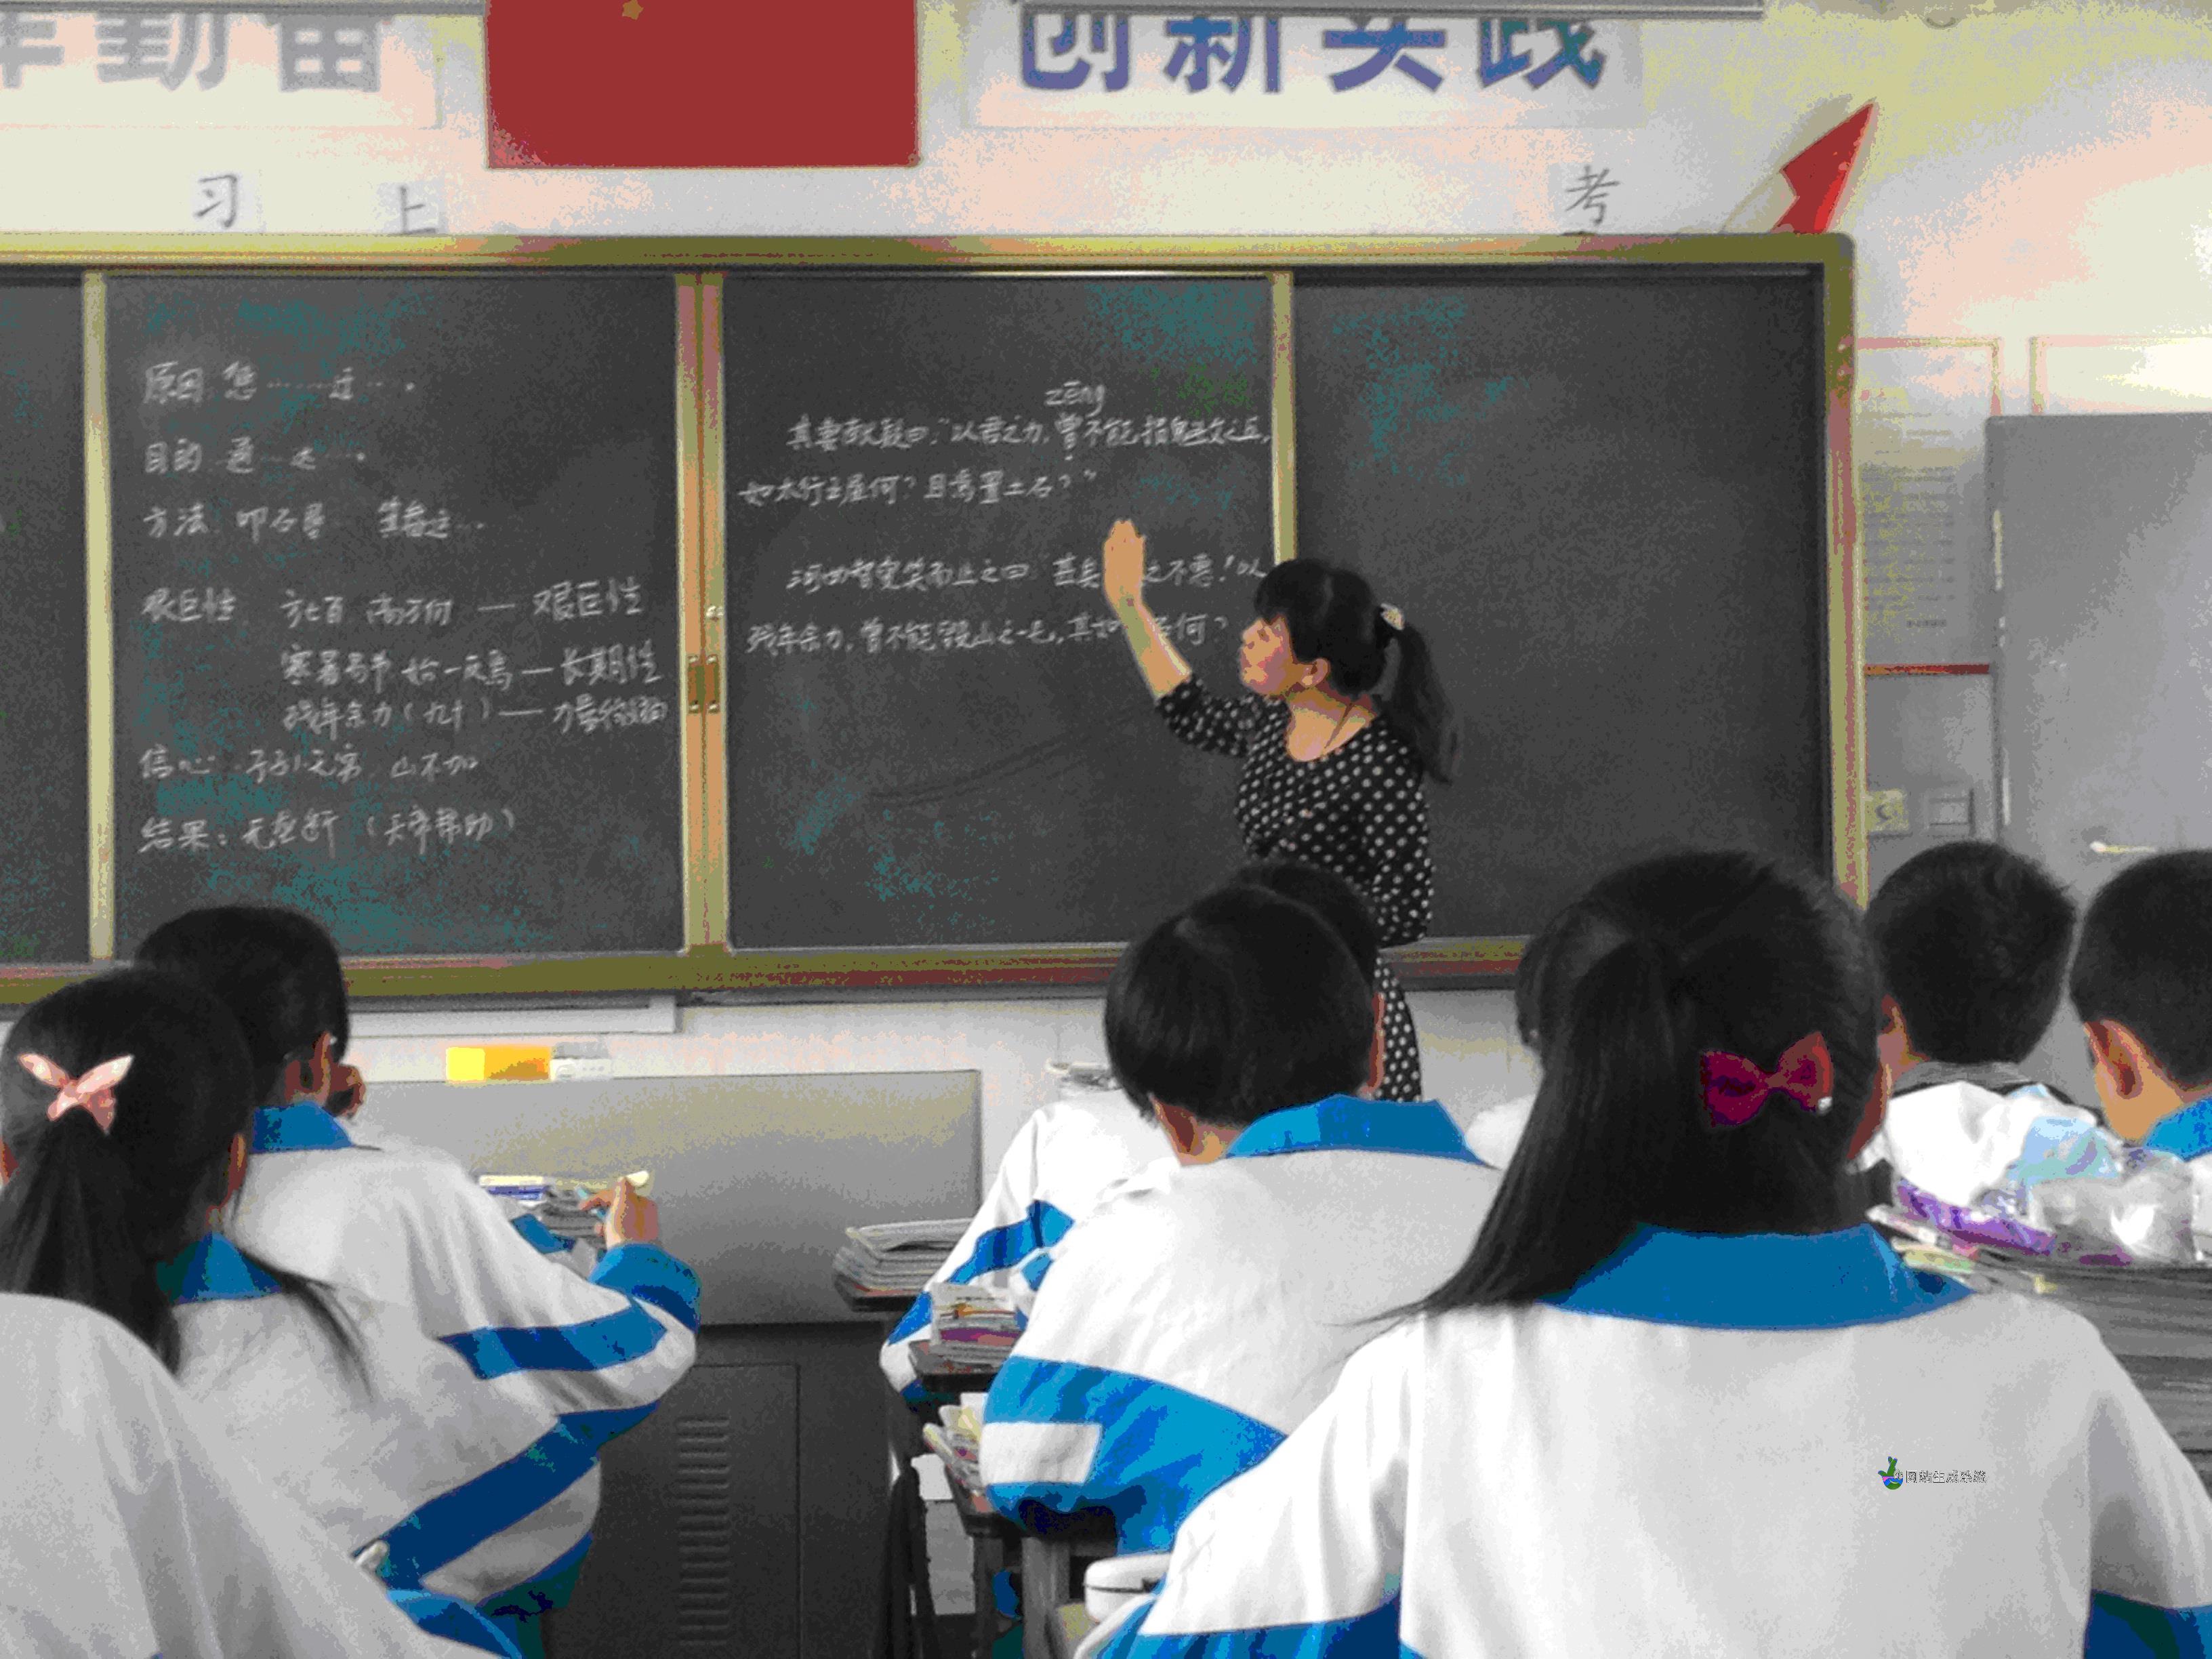 创新实践
习 上 考
原因 惩……迂…
目的 通…达…
方法 叩石垦 箕畚运…
艰巨性 方七百 高万何 — 艰巨性
寒暑易节 始一反焉 — 长期性
残年余力（九十）— 力量微弱
信心 子子孙无穷 山不加
结果：无垄断（天帝帮助）
zēng
其妻献疑曰："以君之力，曾不能损魁父之丘，
如太行王屋何？且焉置土石？"
河曲智叟笑而止之曰 甚矣 之不惠！以
残年余力，曾不能毁山之一毛，其如 石何？